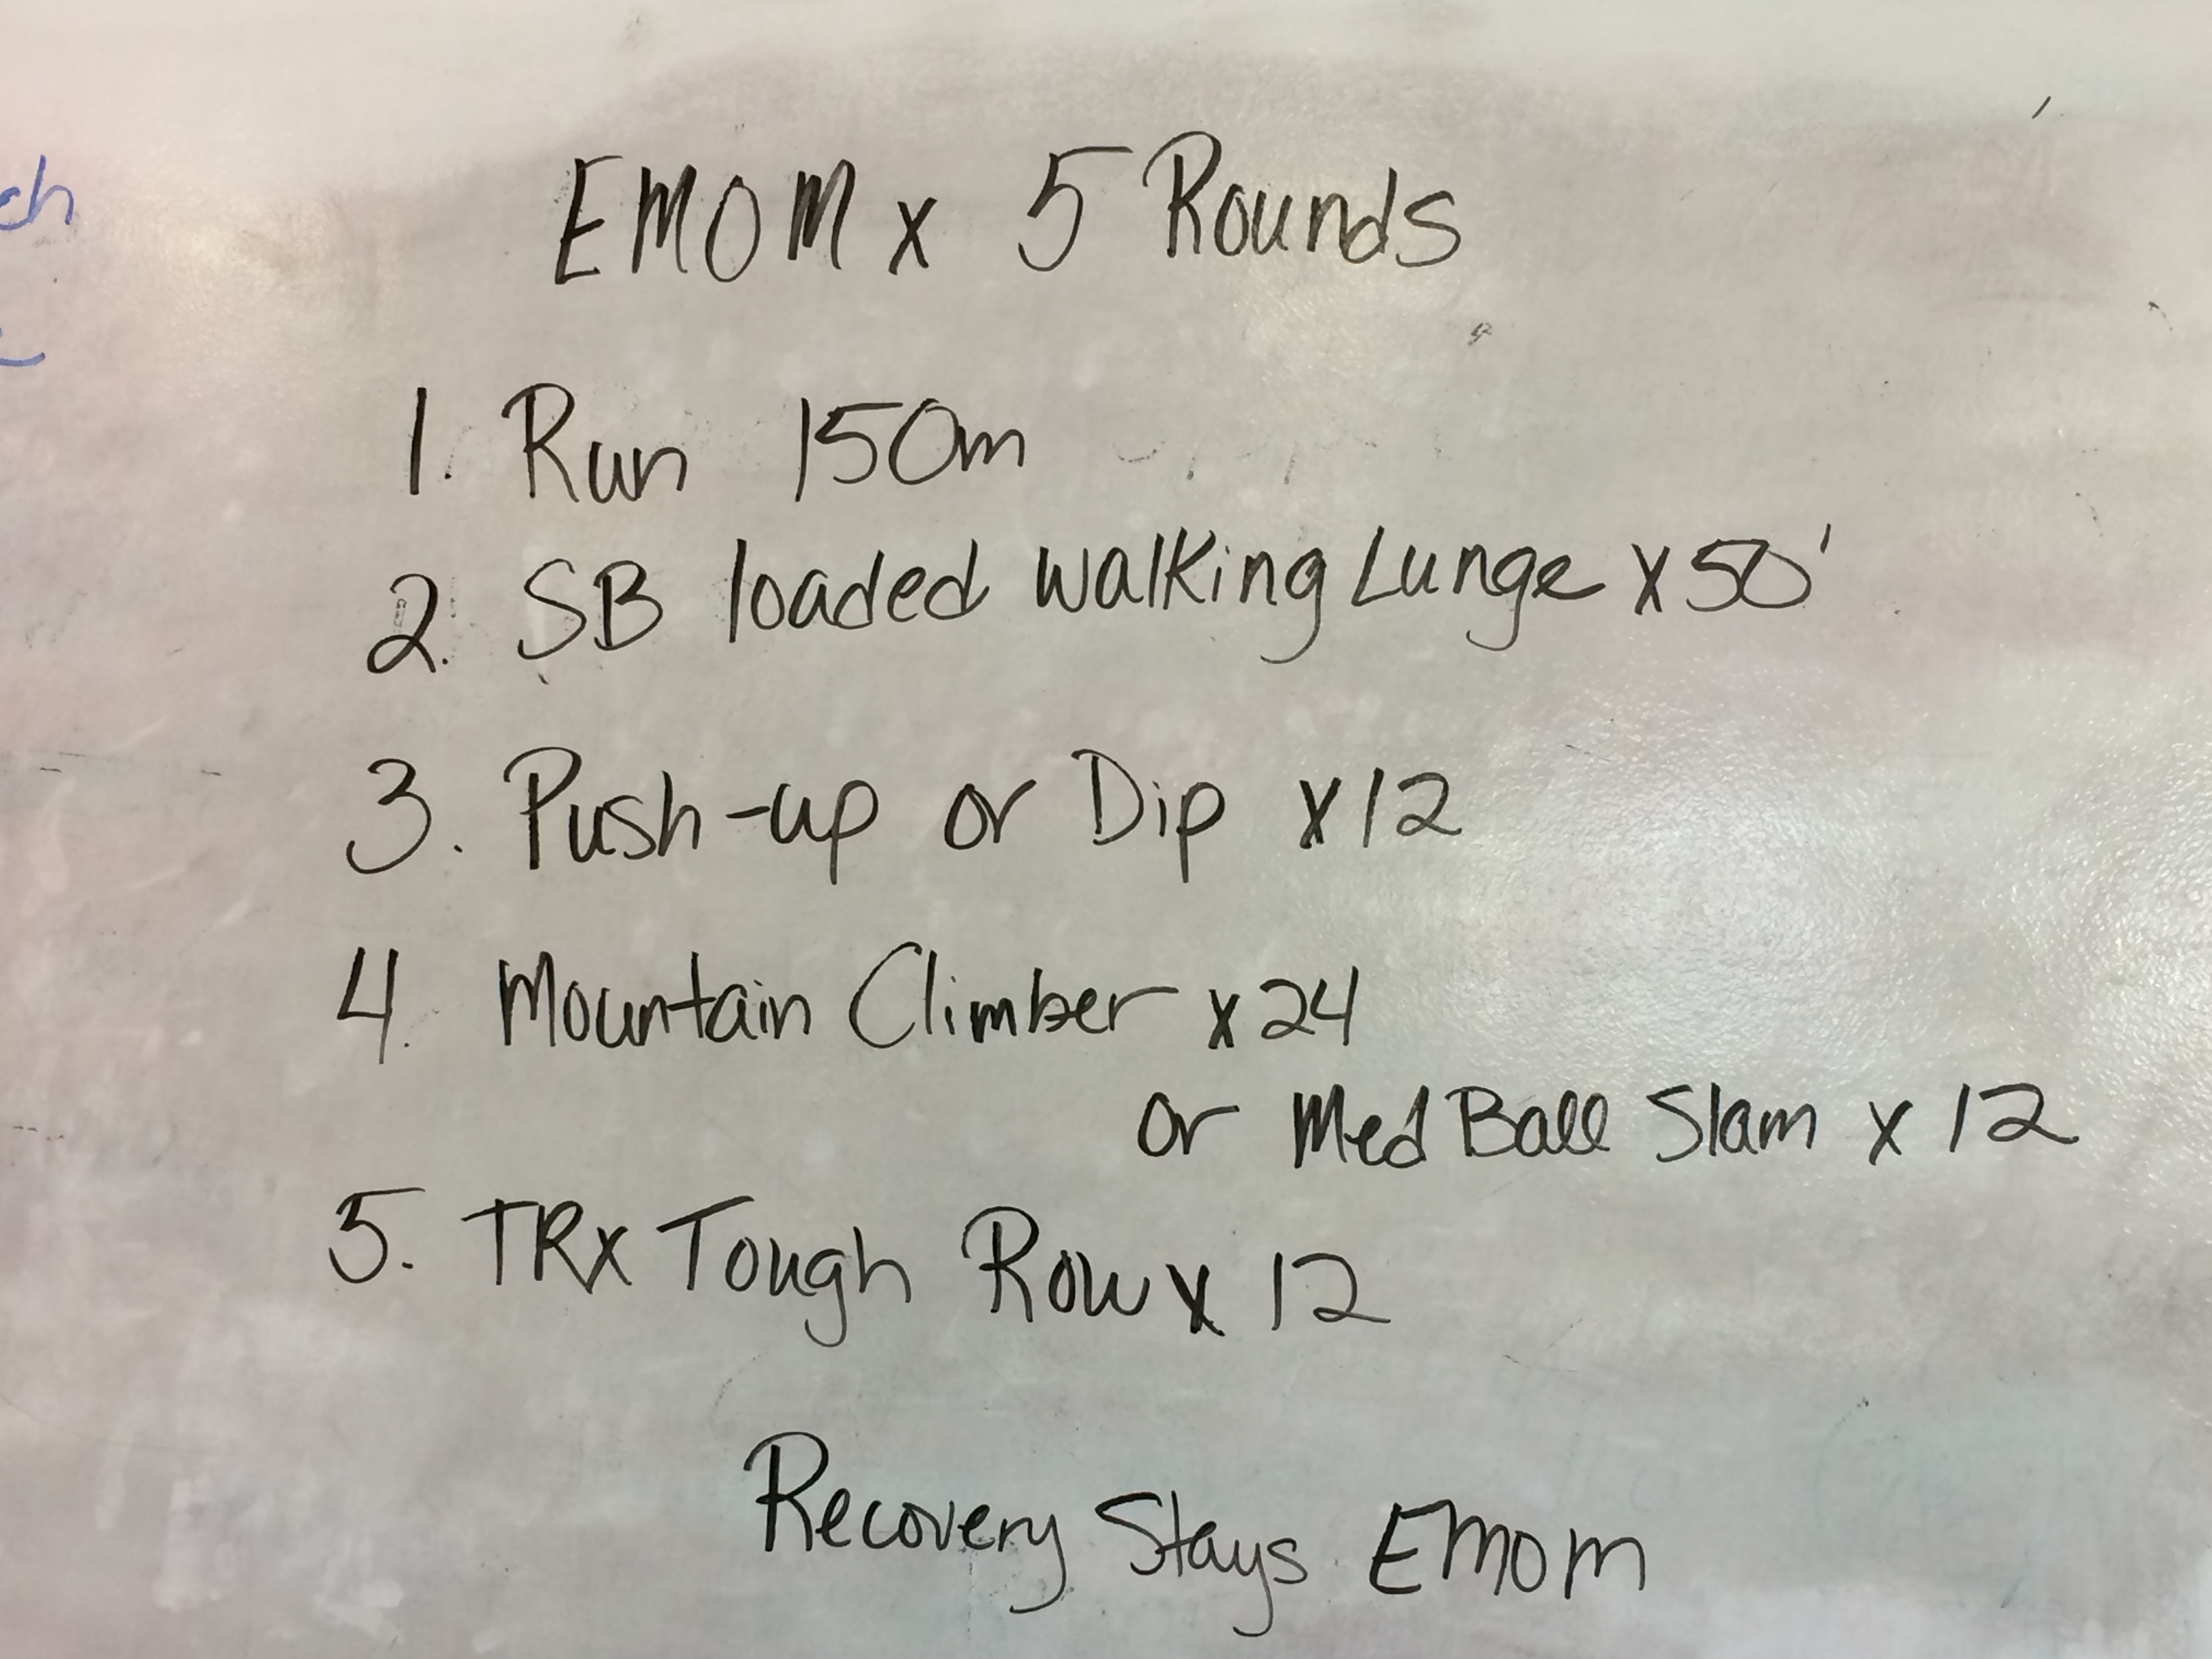 EMOM x 5 Rounds
1. Run 150m
2. SB loaded walking Lunge x 50'
3. Push-up or Dip x 12
4. Mountain Climber x 24
or Med Ball Slam x 12
5. TRX Tough Row x 12
Recovery Stays EMOM